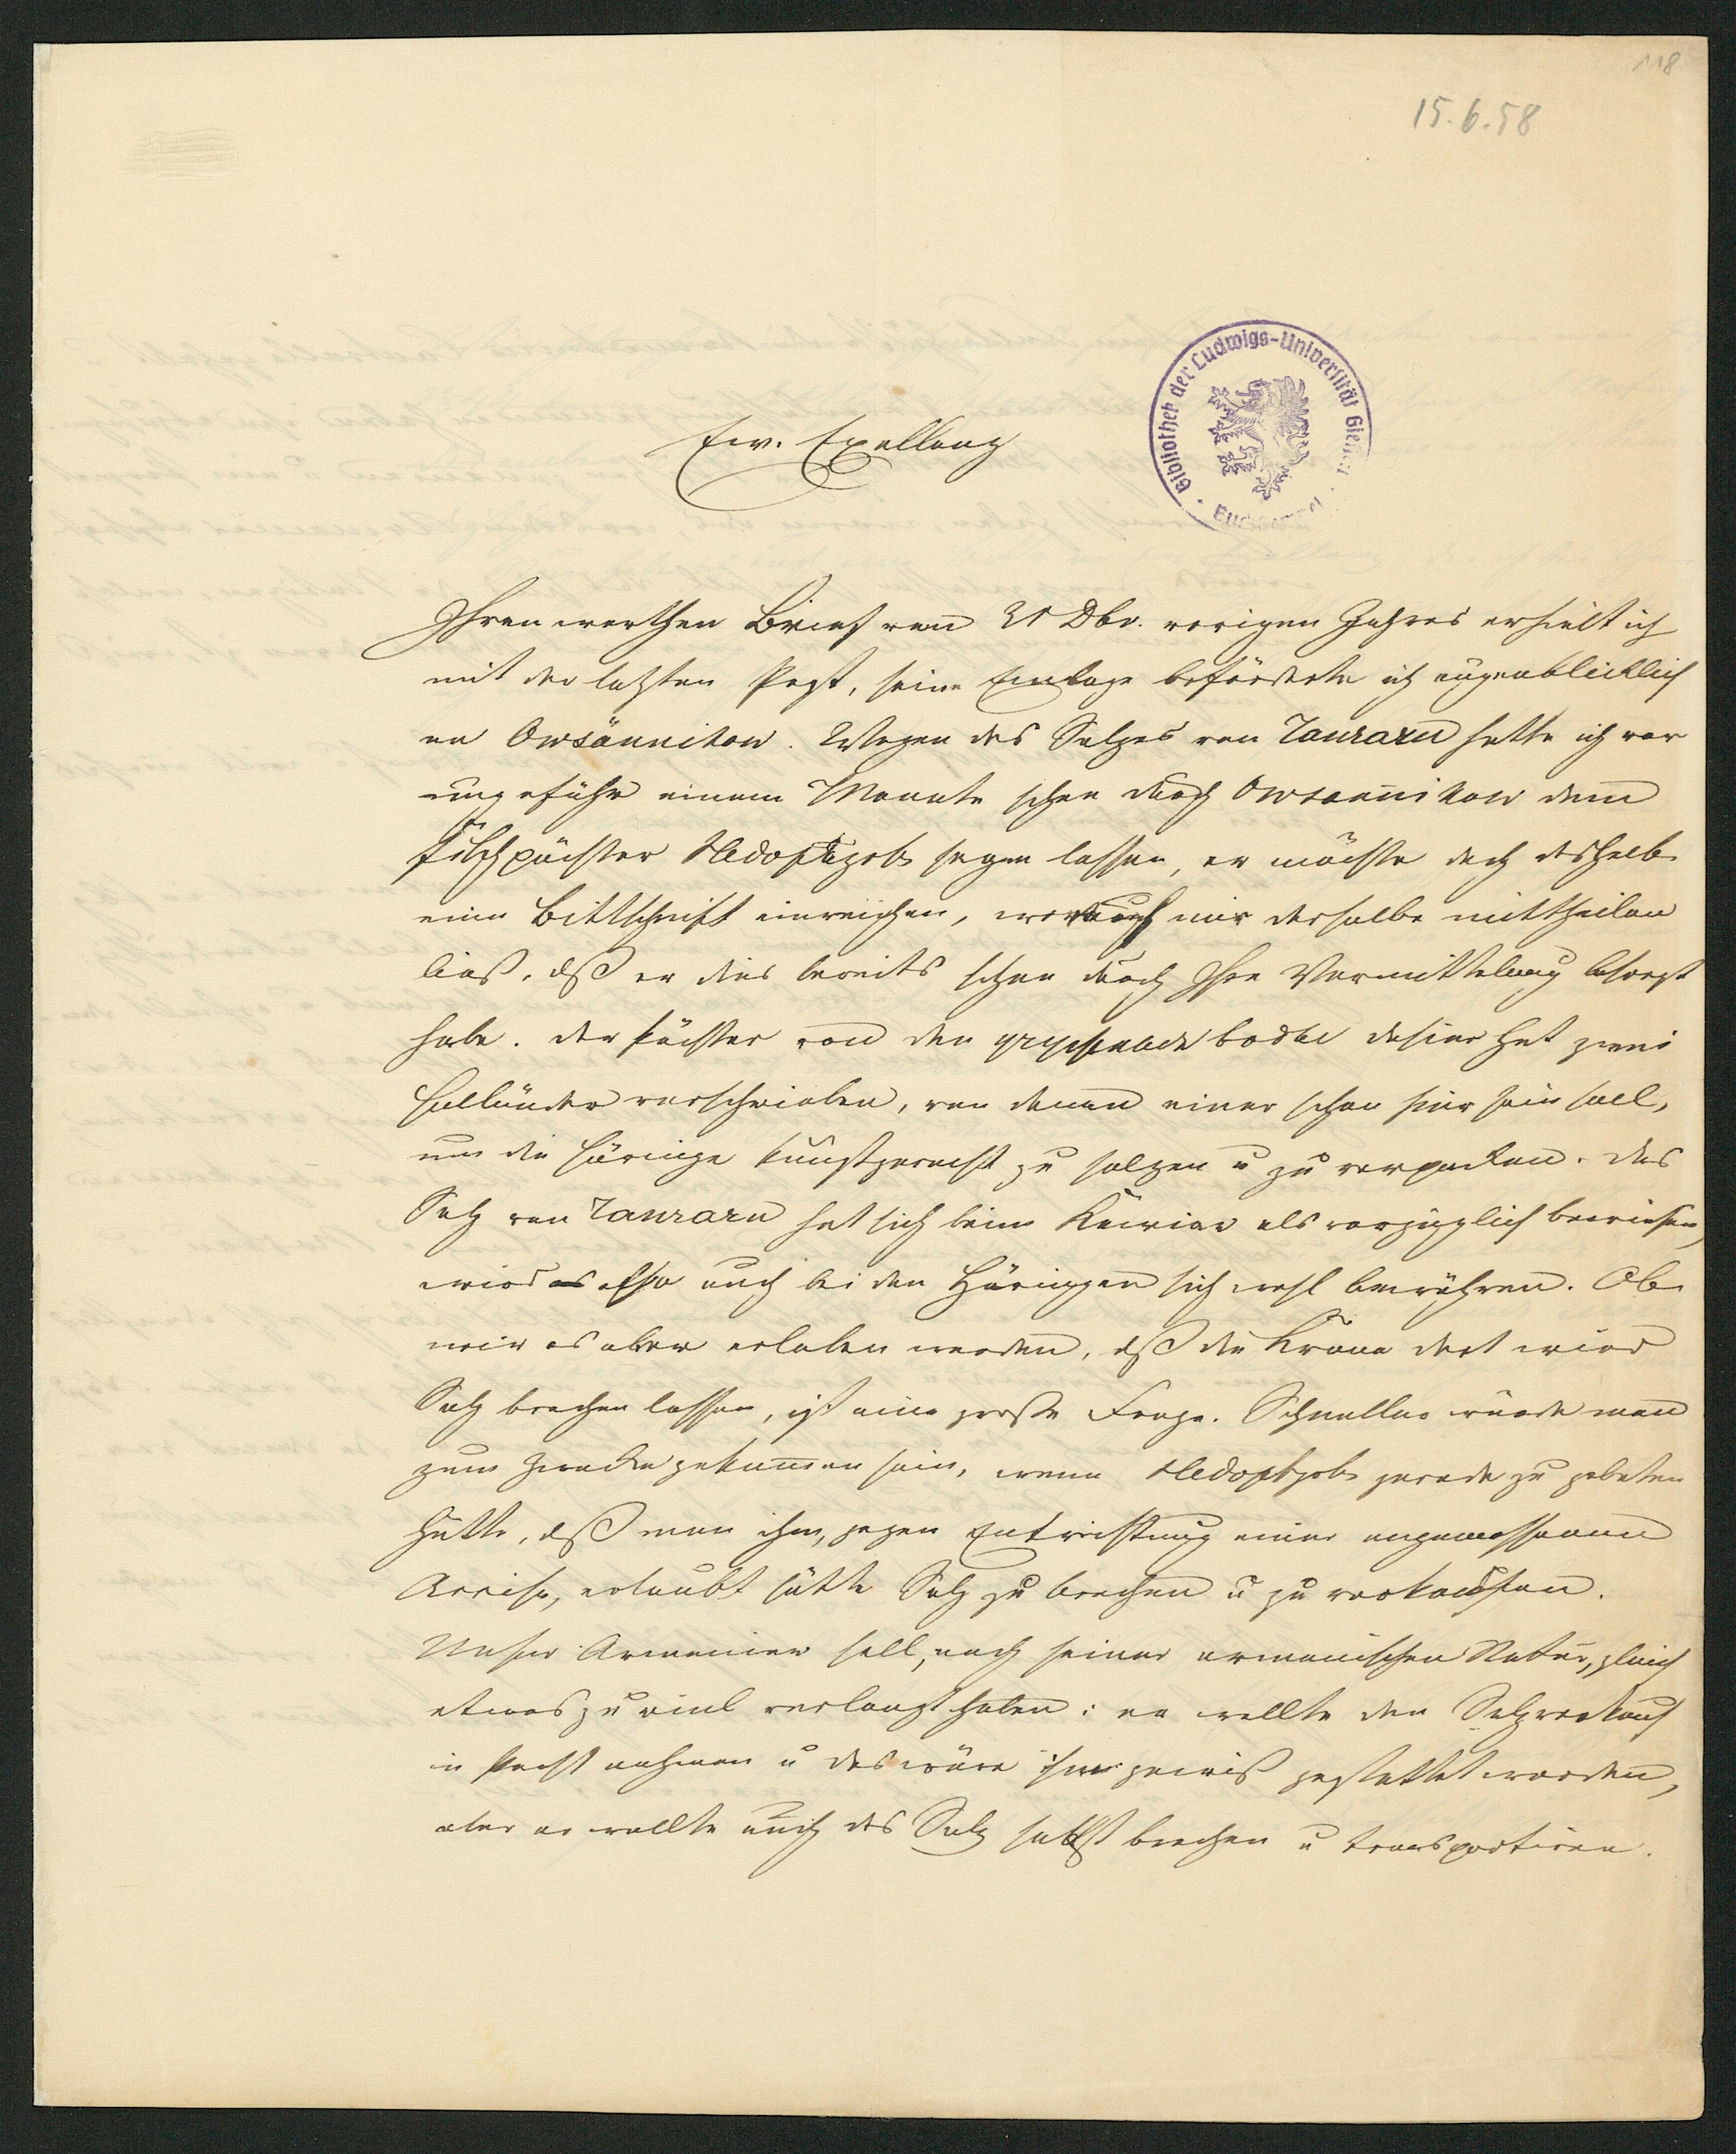 118
15.6.58
Bibliothek der Ludwigs-Universität Gießen
Ew. Exellenz
Ihren werthen Brief vom 21 Dbr. vorigen Jahres erhielt ich
mit der letzten Post, seine Einlage beförderte ich augenblicklich
an Owsännikow. Wegen des Salzes von hatte ich vor
ungefähr einem Monate schon durch Owsannikow dem
Fischpächter sagen lassen, er möchte doch deshalb
eine Bittschrift einreichen, worauf mir derselbe mittheilen
ließ, dß er dies bereits schon durch Ihre Vermittelung besorgt
habe. Der Pächter von den воды hat zwei
Holländer verschrieben, von denen einer schon hier sein soll,
um die Häringe kunstgerecht zu salzen u zu verpacken. Das
Salz von hat sich beim Kawiar als vorzüglich bewiesen,
wird es also auch bei den Häringen sich wohl bewähren. Ob
wir es aber erleben werden, dß die Krone dort wird
Salz brechen lassen, ist eine große Frage. Schneller würde man
zum Zwecke gekommen sein, wenn gerade zu gebeten
hätte, dß man ihm, gegen Entrichtung einer angemessenen
Accise, erlaubt hätte Salz zu brechen u zu verkaufen.
Unser Armenier soll, nach seiner armenischen Natur, gleich
etwas zu viel verlangt haben: er wollte den Salzverkauf
in Pacht nehmen u das wäre ihm gewiß gestattet worden,
aber er wollte auch das Salz selbst brechen u transportiren.